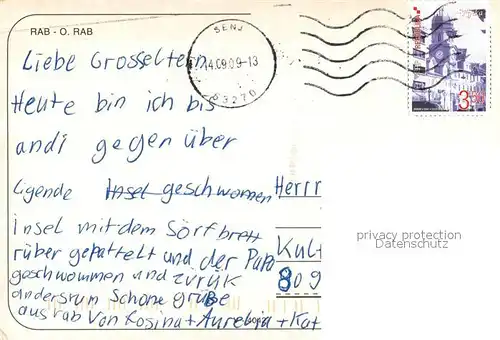 RAB - O. RAB
SENJ
14.09.09-13
53270
3,50
Liebe Grosseltern
Heute bin ich bis
andi gegen über
ligende Insel geschwomen
insel mit dem Sörfbrett
rüber gepattelt und der Papa
geschwommen und zurük
andersrum Schöne grüße
aus rab Von Rosina + Aurelia + Kat
Herrn
Kult
809
privacy protection
Datenschutz